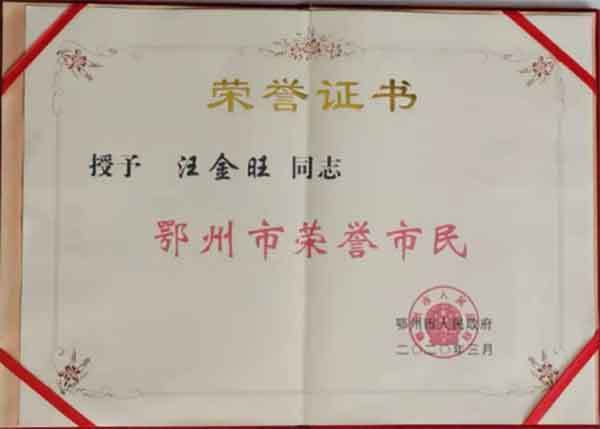 荣誉证书
授予 汪金旺 同志
鄂州市荣誉市民
鄂州市人民政府
二〇二〇年三月